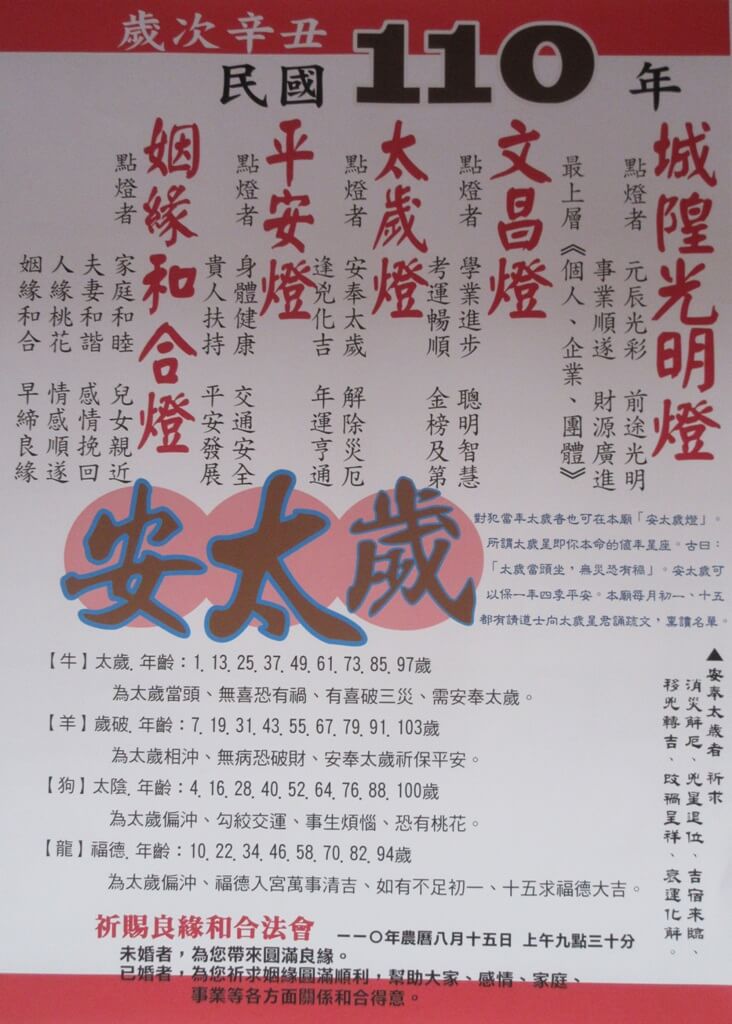 歲次辛丑
民國110年
城隍光明燈
點燈者 元辰光彩 前途光明
事業順遂 財源廣進
最上層《個人、企業、團體》
文昌燈
點燈者 學業進步 聰明智慧
考運暢順 金榜及第
太歲燈
點燈者 安奉太歲 解除災厄
逢兇化吉 年運亨通
平安燈
點燈者 身體健康 交通安全
貴人扶持 平安發展
姻緣和合燈
點燈者 家庭和睦 兒女親近
夫妻和諧 感情挽回
人緣桃花 情感順遂
姻緣和合 早締良緣
安太歲
對犯當年太歲者也可在本廟「安太歲燈」。
所謂太歲星即你本命的值年星座。古曰：
「太歲當頭坐，無災恐有禍」。安太歲可
以保一年四季平安。本廟每月初一、十五
都有請道士向太歲星君誦疏文，稟讀名單。
【牛】太歲．年齡：1．13．25．37．49．61．73．85．97歲
為太歲當頭、無喜恐有禍、有喜破三災、需安奉太歲。
【羊】歲破．年齡：7．19．31．43．55．67．79．91．103歲
為太歲相沖、無病恐破財、安奉太歲祈保平安。
【狗】太陰．年齡：4．16．28．40．52．64．76．88．100歲
為太歲偏沖、勾絞交運、事生煩惱、恐有桃花。
【龍】福德．年齡：10．22．34．46．58．70．82．94歲
為太歲偏沖、福德入宮萬事清吉、如有不足初一、十五求福德大吉。
▲安奉太歲者 祈求
消災解厄、兇星退位、吉宿來臨、
移兇轉吉、改禍呈祥、衰運化解。
祈賜良緣和合法會 一一○年農曆八月十五日 上午九點三十分
未婚者，為您帶來圓滿良緣。
已婚者，為您祈求姻緣圓滿順利，幫助大家、感情、家庭、
事業等各方面關係和合得意。